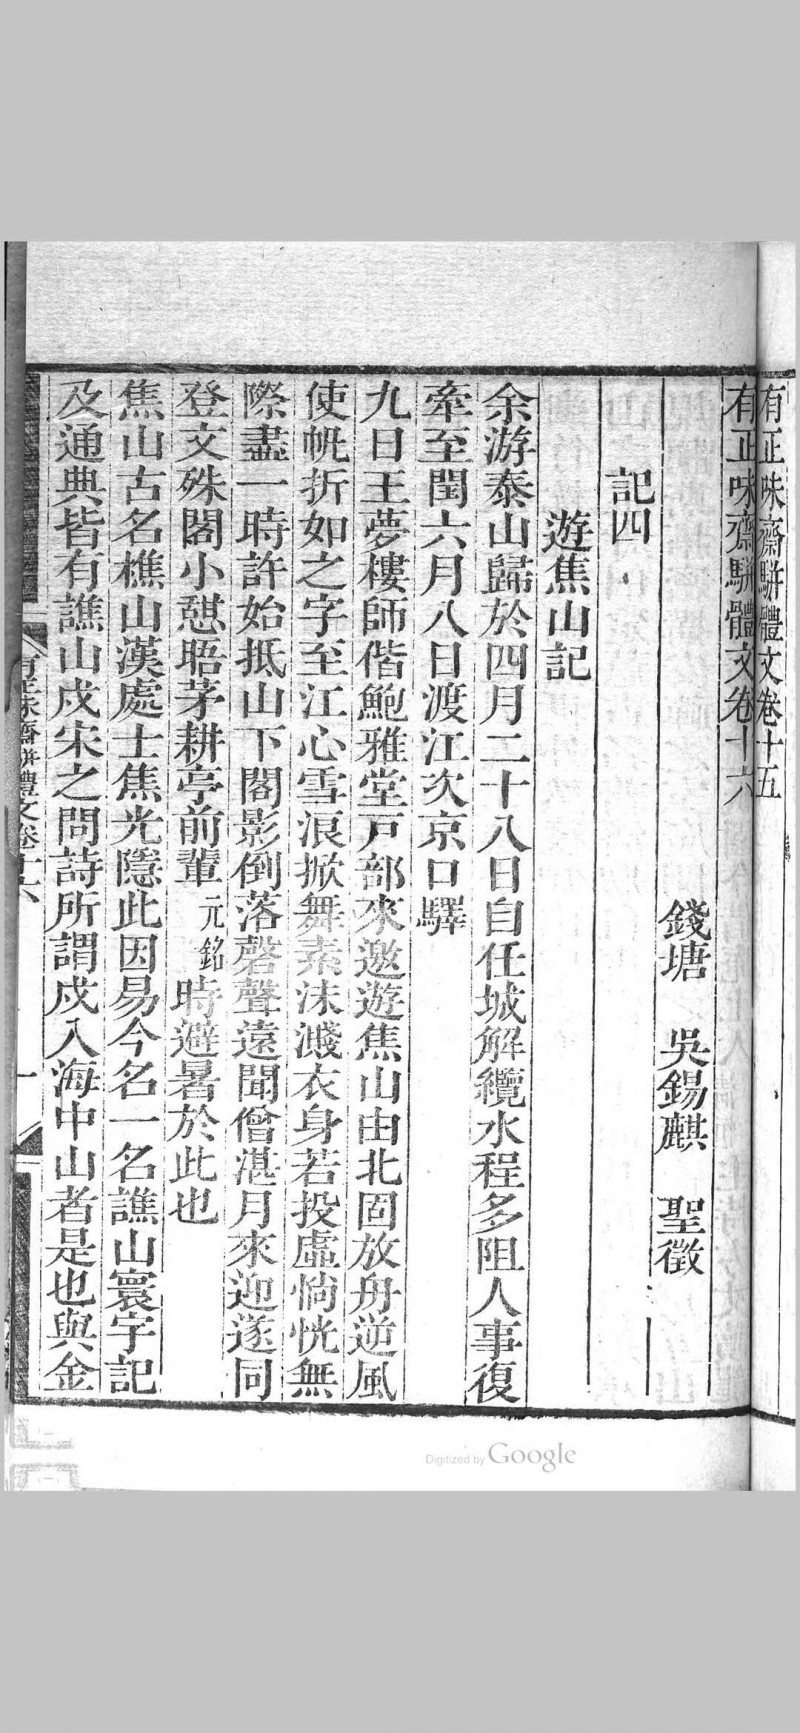 有正味齋駢體文卷十五
有正味齋駢體文卷十六
錢塘 吳錫麒 聖徵
記四
遊焦山記
余游泰山歸於四月二十八日自任城解纜水程多阻人事復
牽至閏六月八日渡江次京口驛
九日王夢樓師偕鮑雅堂戸部來邀遊焦山由北固放舟逆風
使帆折如之字至江心雪浪掀舞素沫濺衣身若投虛惝恍無
際盡一時許始抵山下閣影倒落磬聲遠聞僧湛月來迎遂同
登文殊閣小憇晤茅耕亭前輩元銘時避暑於此也
焦山古名樵山漢處士焦光隱此因易今名一名譙山寰宇記
及通典皆有譙山戍宋之問詩所謂戍入海中山者是也與金
有正味齋駢體文卷十六
一
Digitized by Google